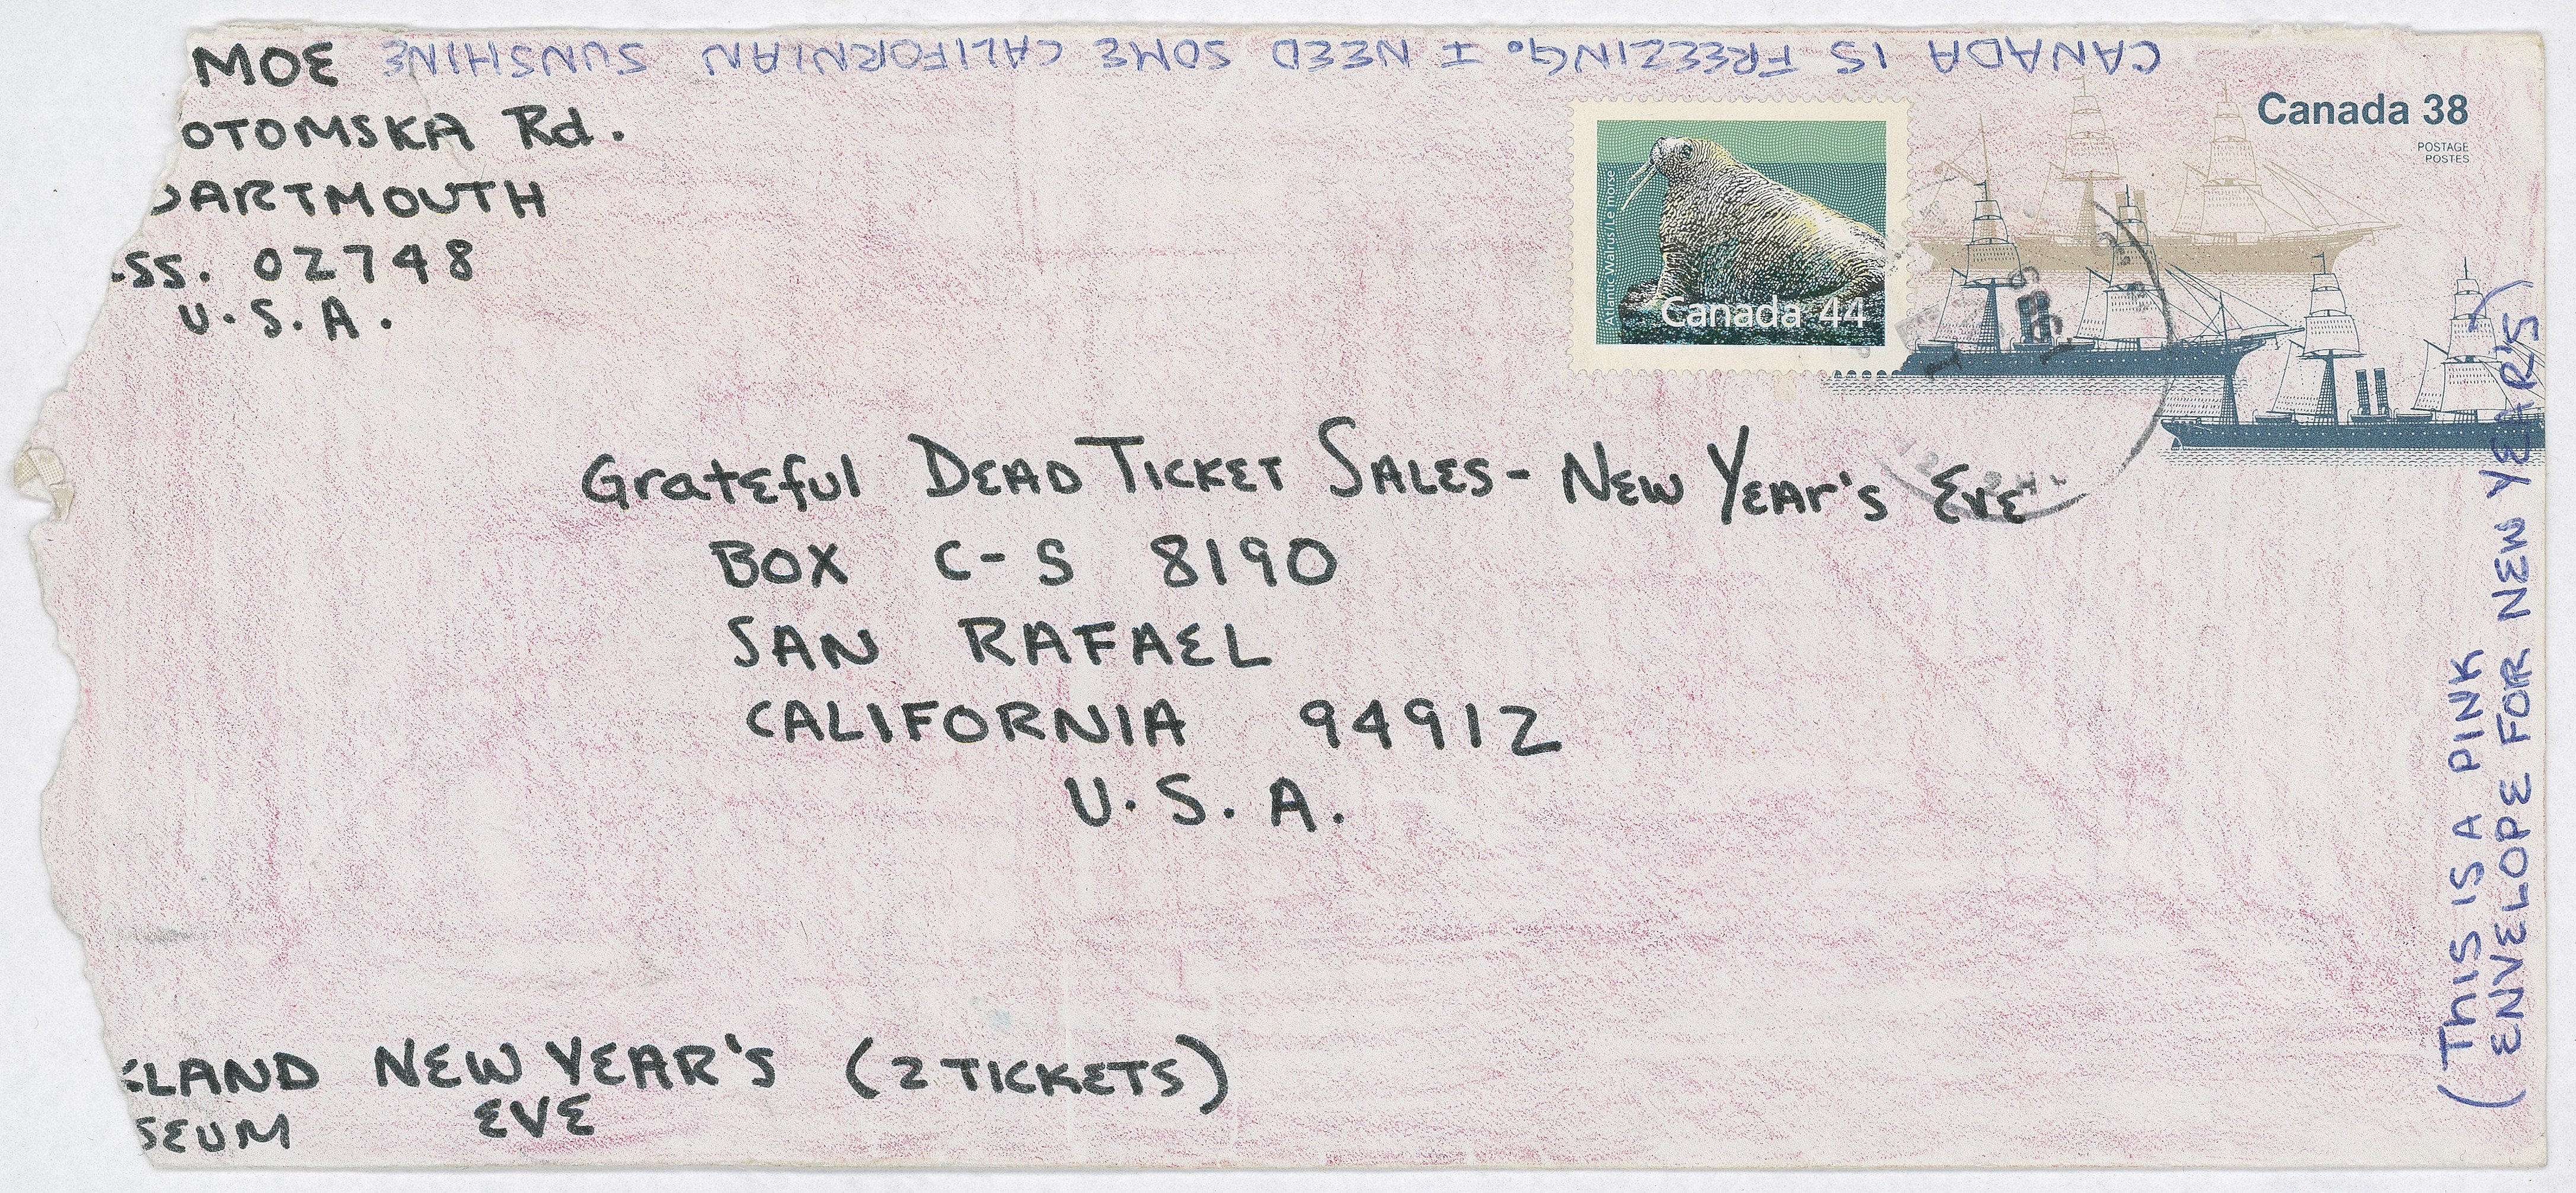 MOE
OTOMSKA Rd.
DARTMOUTH
SS. 02748
U.S.A.
CANADA IS FREEZING. I NEED SOME CALIFORNIAN SUNSHINE
Canada 38
POSTAGE
POSTES
Atlantic Walrus/Le morse
Canada 44
Grateful DEAD TICKET SALES - NEW YEAR'S EVE
BOX C-S 8190
SAN RAFAEL
CALIFORNIA 94912
U.S.A.
(THIS IS A PINK
ENVELOPE FOR NEW YEAR'S)
KLAND NEW YEAR'S (2 TICKETS)
SEUM EVE